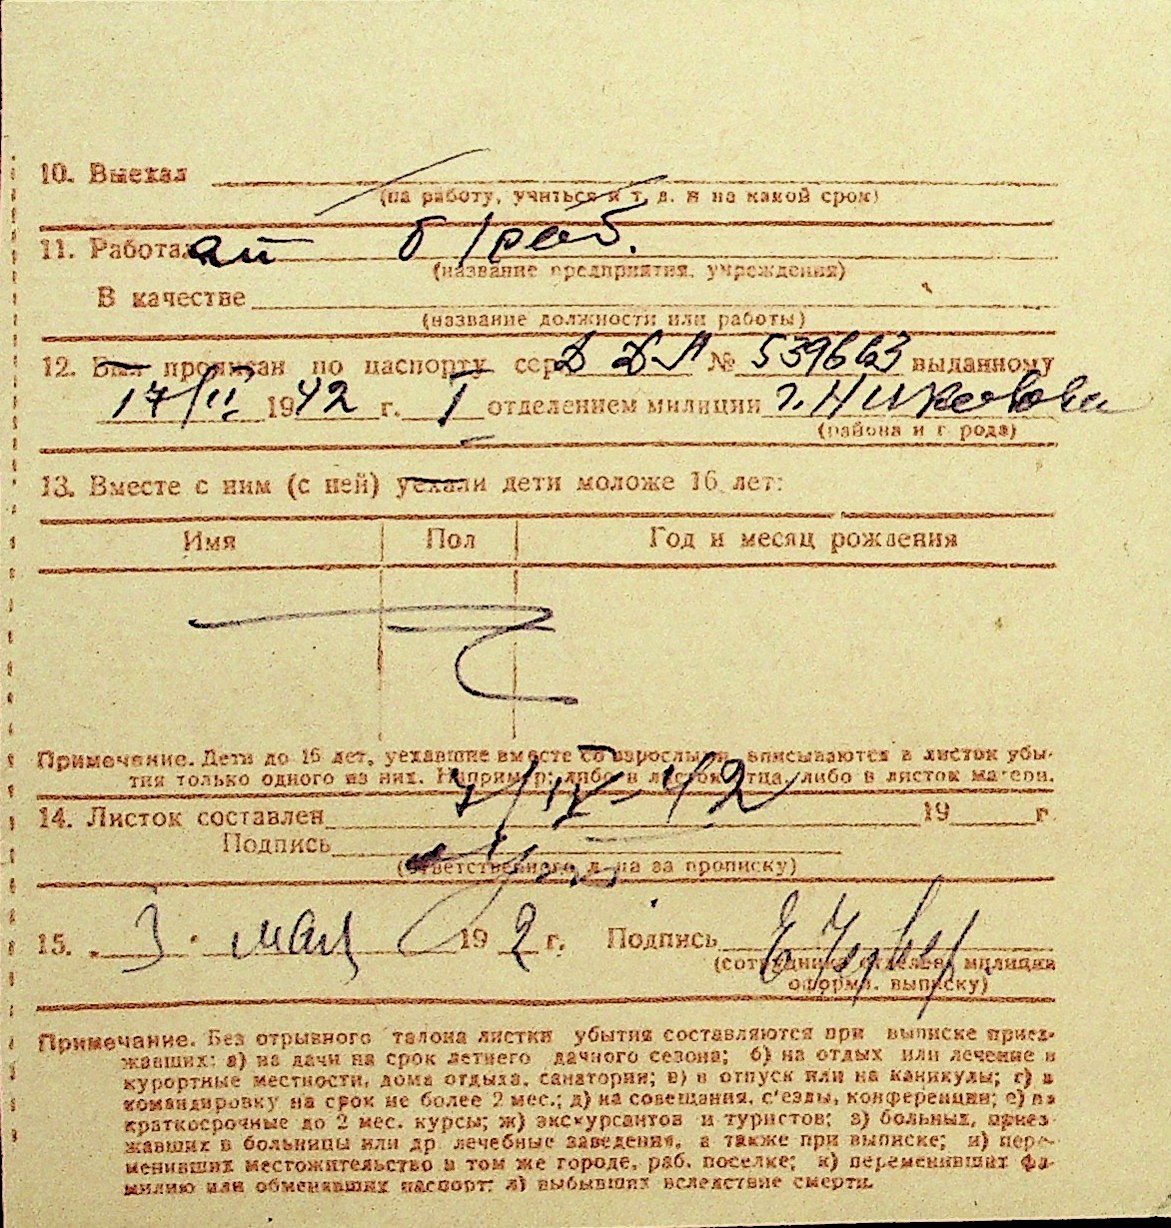 10. Выехал
(на работу, учиться и т. д. и на какой срок)
11. Работал б/раб.
(название предприятия, учреждения)
В качестве
(название должности или работы)
12. Был прописан по паспорту сер. № 539663 выданному
17/II 1942 г. I отделением милиции г.
(района и города)
13. Вместе с ним (с ней) уехали дети моложе 16 лет:
Имя Пол Год и месяц рождения
Примечание. Дети до 16 лет, уехавшие вместе со взрослыми, вписываются в листок убы-
тия только одного из них. Например: либо в листок отца, либо в листок матери.
7/IV-42
14. Листок составлен 19 г.
Подпись
(ответственного лица за прописку)
15. 3 мая 19 2 г. Подпись
(сотрудника отделен. милиции
оформ. выписку)
Примечание. Без отрывного талона листки убытия составляются при выписке приез-
жавших: а) на дачи на срок летнего дачного сезона; б) на отдых или лечение в
курортные местности, дома отдыха, санатории; в) в отпуск или на каникулы; г) в
командировку на срок не более 2 мес.; д) на совещания, с'езды, конференции; е) на
краткосрочные до 2 мес. курсы; ж) экскурсантов и туристов; з) больных, приез-
жавших в больницы или др лечебные заведения, а также при выписке; и) пере-
менивших местожительство в том же городе, раб. поселке; к) переменивших фа-
милию или обменявших паспорт; л) выбывших вследствие смерти.